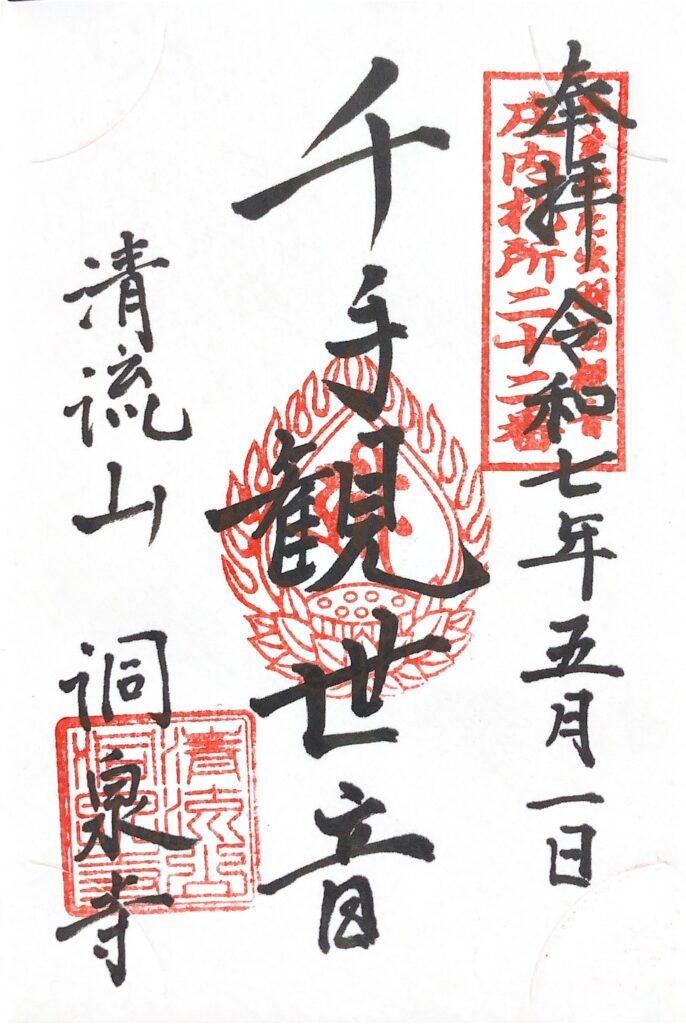 奉拝 令和七年五月一日
庄内札所二十二番
千手観世音
清流山 洞泉寺